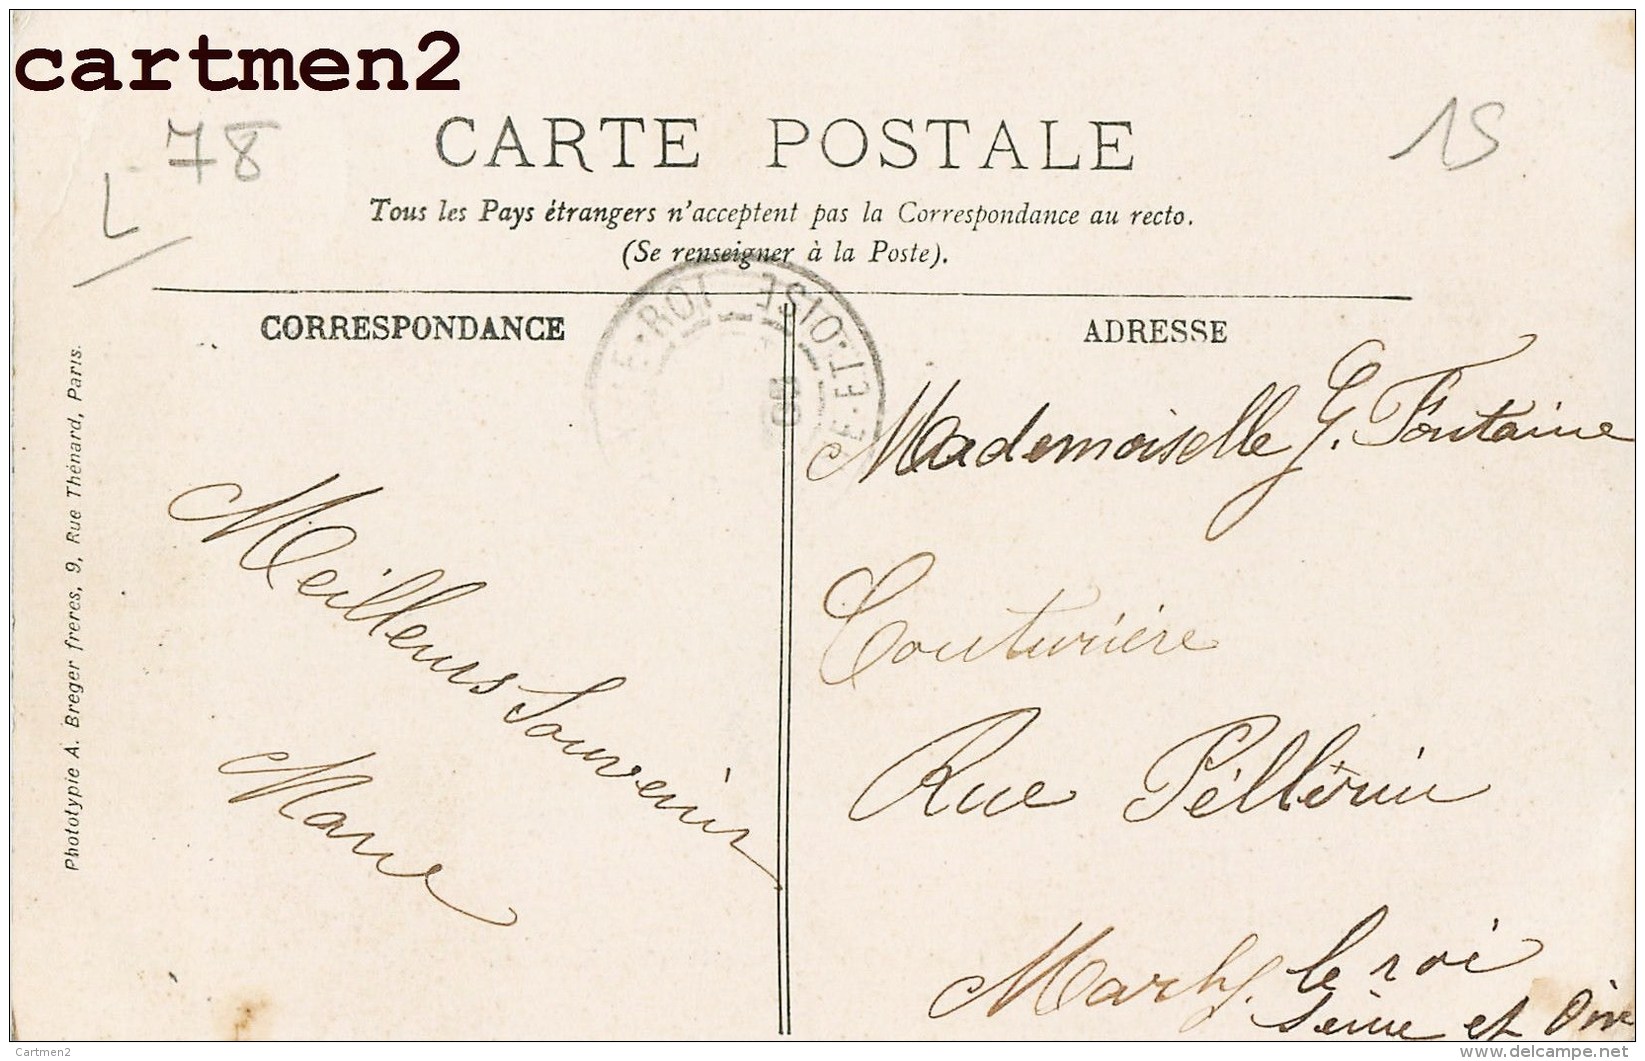 cartmen2
78
15
L
CARTE POSTALE
Tous les Pays étrangers n'acceptent pas la Correspondance au recto.
(Se renseigner à la Poste).
CORRESPONDANCE
LE·ROI
E·ET·OISE
ADRESSE
Photolypie A. Breger freres, 9, Rue Thénard, Paris.
Meilleurs Souvenirs
Marie
Mademoiselle G. Fontaine
Couturière
Rue Pellerin
Marly. le roi
Seine et Oise
Cartmen2
http://www.delcampe.net